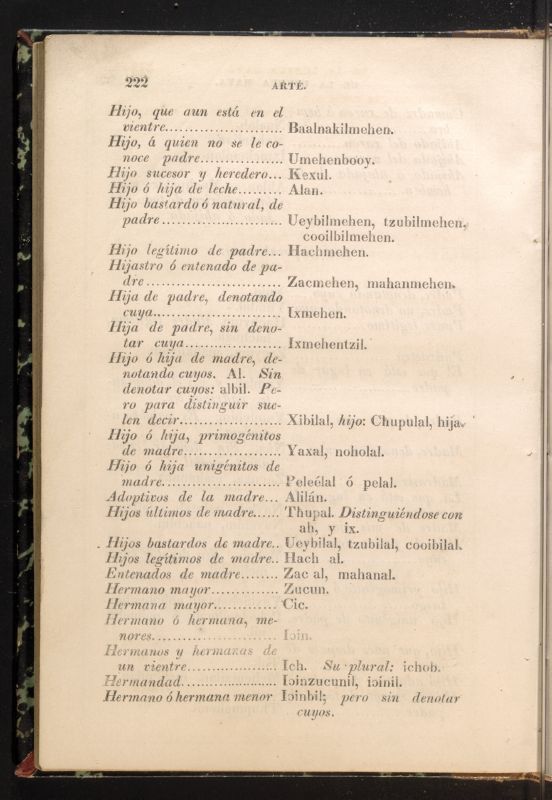 222 ARTE.
Hijo, que aun está en el
vientre........................ Baalnakilmehen.
Hijo, á quien no se le co-
noce padre................. Umehenbooy.
Hijo sucesor y heredero... Kexul.
Hijo ó hija de leche......... Alan.
Hijo bastardo ó natural, de
padre......................... Ueybilmehen, tzubilmehen,
cooilbilmehen.
Hijo legítimo de padre... Hachmehen.
Hijastro ó entenado de pa-
dre............................ Zacmehen, mahanmehen.
Hija de padre, denotando
cuya........................... Ixmehen.
Hija de padre, sin deno-
tar cuya.................... Ixmehentzil.
Hijo ó hija de madre, de-
notando cuyos. Al. Sin
denotar cuyos: albil. Pe-
ro para distinguir sue-
len decir..................... Xibilal, hijo: Chupulal, hija.
Hijo ó hija, primogénitos
de madre.................... Yaxal, noholal.
Hijo ó hija unigénitos de
madre........................ Peleélal ó pelal.
Adoptivos de la madre... Alilán.
Hijos últimos de madre...... Thupal. Distinguiéndose con
ah, y ix.
Hijos bastardos de madre.. Ueybilal, tzubilal, cooibilal.
Hijos legítimos de madre.. Hach al.
Entenados de madre........ Zac al, mahanal.
Hermano mayor.............. Zucun.
Hermana mayor............. Cic.
Hermano ó hermana, me-
nores.......................... Iɔin.
Hermanos y hermanas de
un vientre................... Ich. Su plural: ichob.
Hermandad.................... Iɔinzucunil, iɔinil.
Hermano ó hermana menor Iɔinbil; pero sin denotar
cuyos.